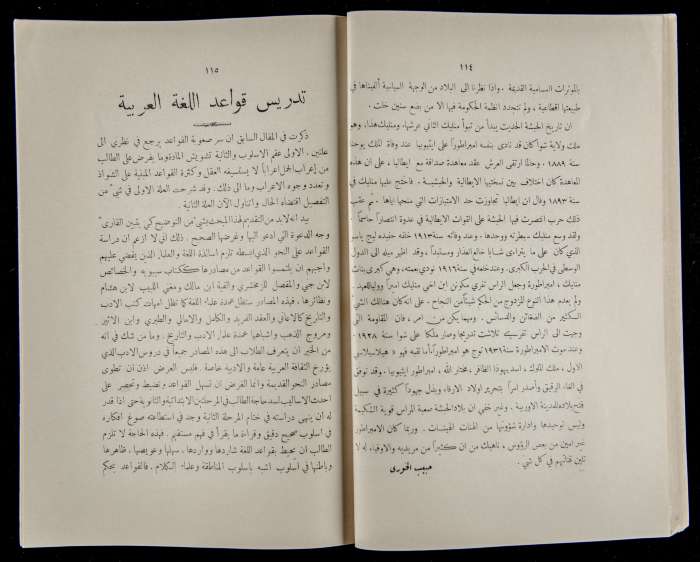 ١١٤
بالمؤثرات السامية القديمة . واذا نظرنا الى البلاد من الوجهة السياسية ألفيناها في
طبيعتها اقطاعية ، ولم تتجدد انظمة الحكومة فيها الا من بضع سنين خلت .
ان تاريخ الحبشة الحديث يبدأ من تبوأ منليك الثاني عرشها. ومنليك هذا، وهو
ملك ولاية شوا كان قد نادى بنفسه امبراطوراً على ايثيوبيا عند وفاة الملك يوحنا
سنة ١٨٨٩ . وحالما ارتقى العرش عقد معاهدة صداقة مع ايطاليا ، على ان هذه
المعاهدة كان اختلاف بين نسختيها الايطالية والحبشية . فاحتج عليها منليك في
سنة ١٨٩٣ وقال ان ايطاليا تجاوزت حد الامتيازات التي منحها اياها . ثم عقب
ذلك حرب انتصرت فيها الحبشة على القوات الايطالية في عدوة انتصاراً حاسماً .
ولقد وسع منليك سيطرته ووحدها . وعند وفاته سنة ١٩١٣ خلفه حفيده ليج ياسو
الذي كان على ما يتراءى شاباً خالع العذار ومستبداً ، وقد اظهر ميله الى الدول
الوسطى في الحرب الكبرى. وعند خلعه في سنة ١٩١٦ نودي بعمته، وهي كبرى بنات
منليك ، امبراطورة وجعل الراس تفري مكونن ابن اخي منليك اميراً وولياً للعهد .
ولم يعدم هذا النوع المزدوج من الحكم شيئاً من النجاح . على انه كان هنالك الشيء
الكثير من الضغائن والدسائس . ومهما يكن من امر ، فان المقاومة التي
وجهت الى الراس تفري تلاشت تدريجاً وصار ملكاً على شوا سنة ١٩٢٨
وعند موت الامبراطورة سنة ١٩٣١ توج هو امبراطوراً، أما لقبه فهو « هيلاسيلاسي
الاول ، ملك الملوك ، اسد يهوذا الظافر ، مختار الله ، امبراطور ايثيوبيا . وقد توفق
في الغاء الرقيق وأصدر امراً بتحرير اولاد الارقاء وبذل جهوداً كثيرة في سبيل
فتح بلاده للمدنية الاوربية . وغير خفي ان بلاد الحبشة صعبة المراس قوية الشكيمة
وليس توحيدها وادارة شؤونها من الهنات الهينات . وربما كان الامبراطور
غير امين من بعض الرؤوس ، ناهيك من ان كثيراً من مريديه والاوفياء له لا
تلين قناتهم في كل شيء .
حبيب الخوري
١١٥
تدريس قواعد اللغة العربية
ذكرت في المقال السابق ان سر صعوبة القواعد يرجع في نظري الى
علتين ، الاولى عقم الاسلوب والثانية تشويش المادة وما يفرض على الطالب
من إعراب الجمل إعراباً لا يستسيغه العقل وكثرة القواعد المبنية على الشواذ
وتعدد وجوه الاعراب وما الى ذلك . وقد شرحت العلة الاولى في شيء من
التفصيل اقتضاه الحال واتناول الآن العلة الثانية .
بيد انه لابد من التقديم لهذا المبحث بشيء من التوضيح كي يتبين القارئ
وجه الدعوة التي ادعو اليها وغرضها الصحيح . ذلك اني لا ازعم ان دراسة
القواعد على النحو الذي ابسطه تلزم اساتذة اللغة والعلماء الذين يقضي عليهم
واجبهم ان يلتمسوا القواعد من مصادرها ككتاب سيبويه والخصائص
لابن جني والمفصل للزمخشري والفية ابن مالك ومغني اللبيب لابن هشام
ونظائرها . فهذه المصادر ستظل عمدة علماء اللغة كما تظل امهات كتب الادب
والتاريخ كالاغاني والعقد الفريد والكامل والامالي والطبري وابن الاثير
ومروج الذهب واشباهها عمدة علماء الادب والتاريخ . وما من شك في انه
من الخير ان يتعرف الطلاب الى هذه المصادر جميعاً في دروس الادب الذي
يؤرخ الثقافة العربية عامة والادبية خاصة . فليس الغرض اذن ان تطوى
مصادر النحو القديمة وانما الغرض ان تسهل القواعد وتضبط وتحصر على
احدث الاساليب لسد حاجة الطالب في المرحلتين الابتدائية والثانوية حتى اذا قدر
له ان ينهي دراسته في ختام المرحلة الثانية وجد في استطاعته صوغ افكاره
في اسلوب صحيح دقيق وقراءة ما يقرأ في فهم مستقيم . فهذه الحاجة لا تلزم
الطالب ان يحيط بقواعد اللغة شاردها وواردها ، سهلها وعويصها ، ظاهرها
وباطنها في اسلوب اشبه باسلوب المناطقة وعلماء الكلام . فالقواعد بحكم